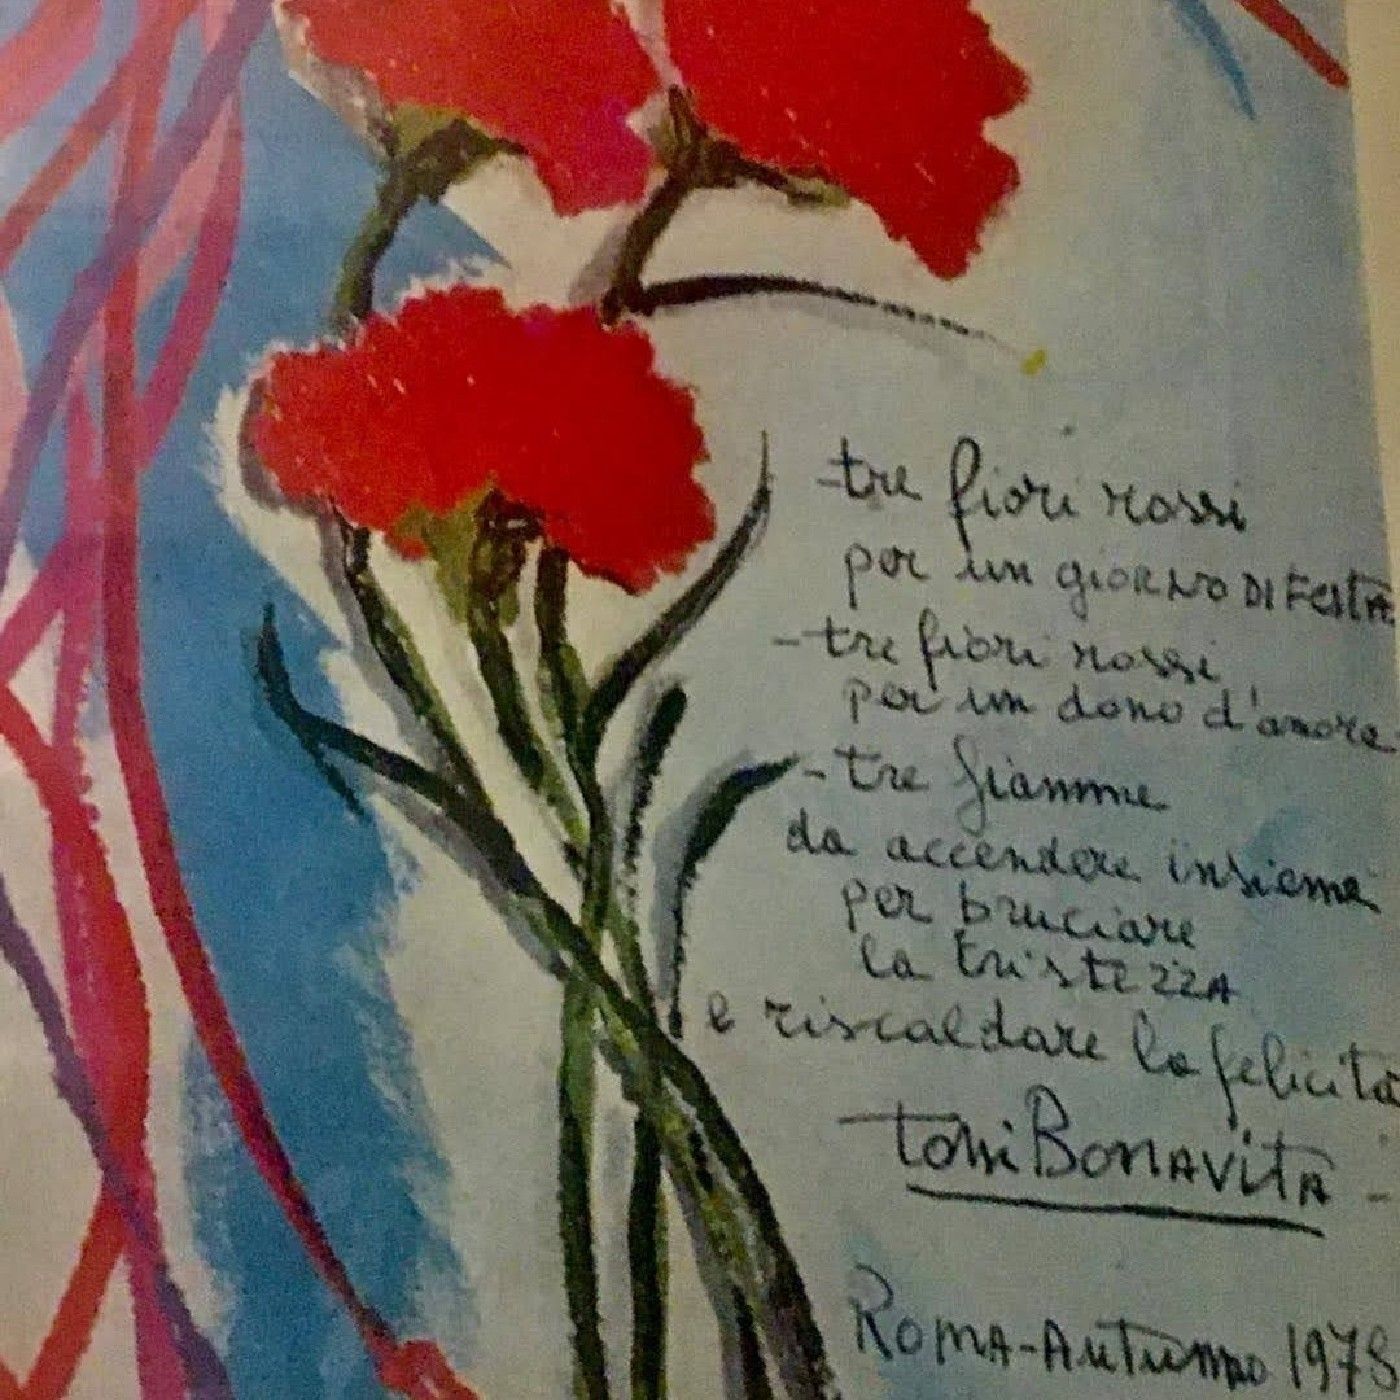 - tre fiori rossi
per un giorno di festa
- tre fiori rossi
per un dono d'amore
- tre fiamme
da accendere insieme
per bruciare
la tristezza
e riscaldare la felicità
Toni Bonavita -
Roma - Autunno 1978